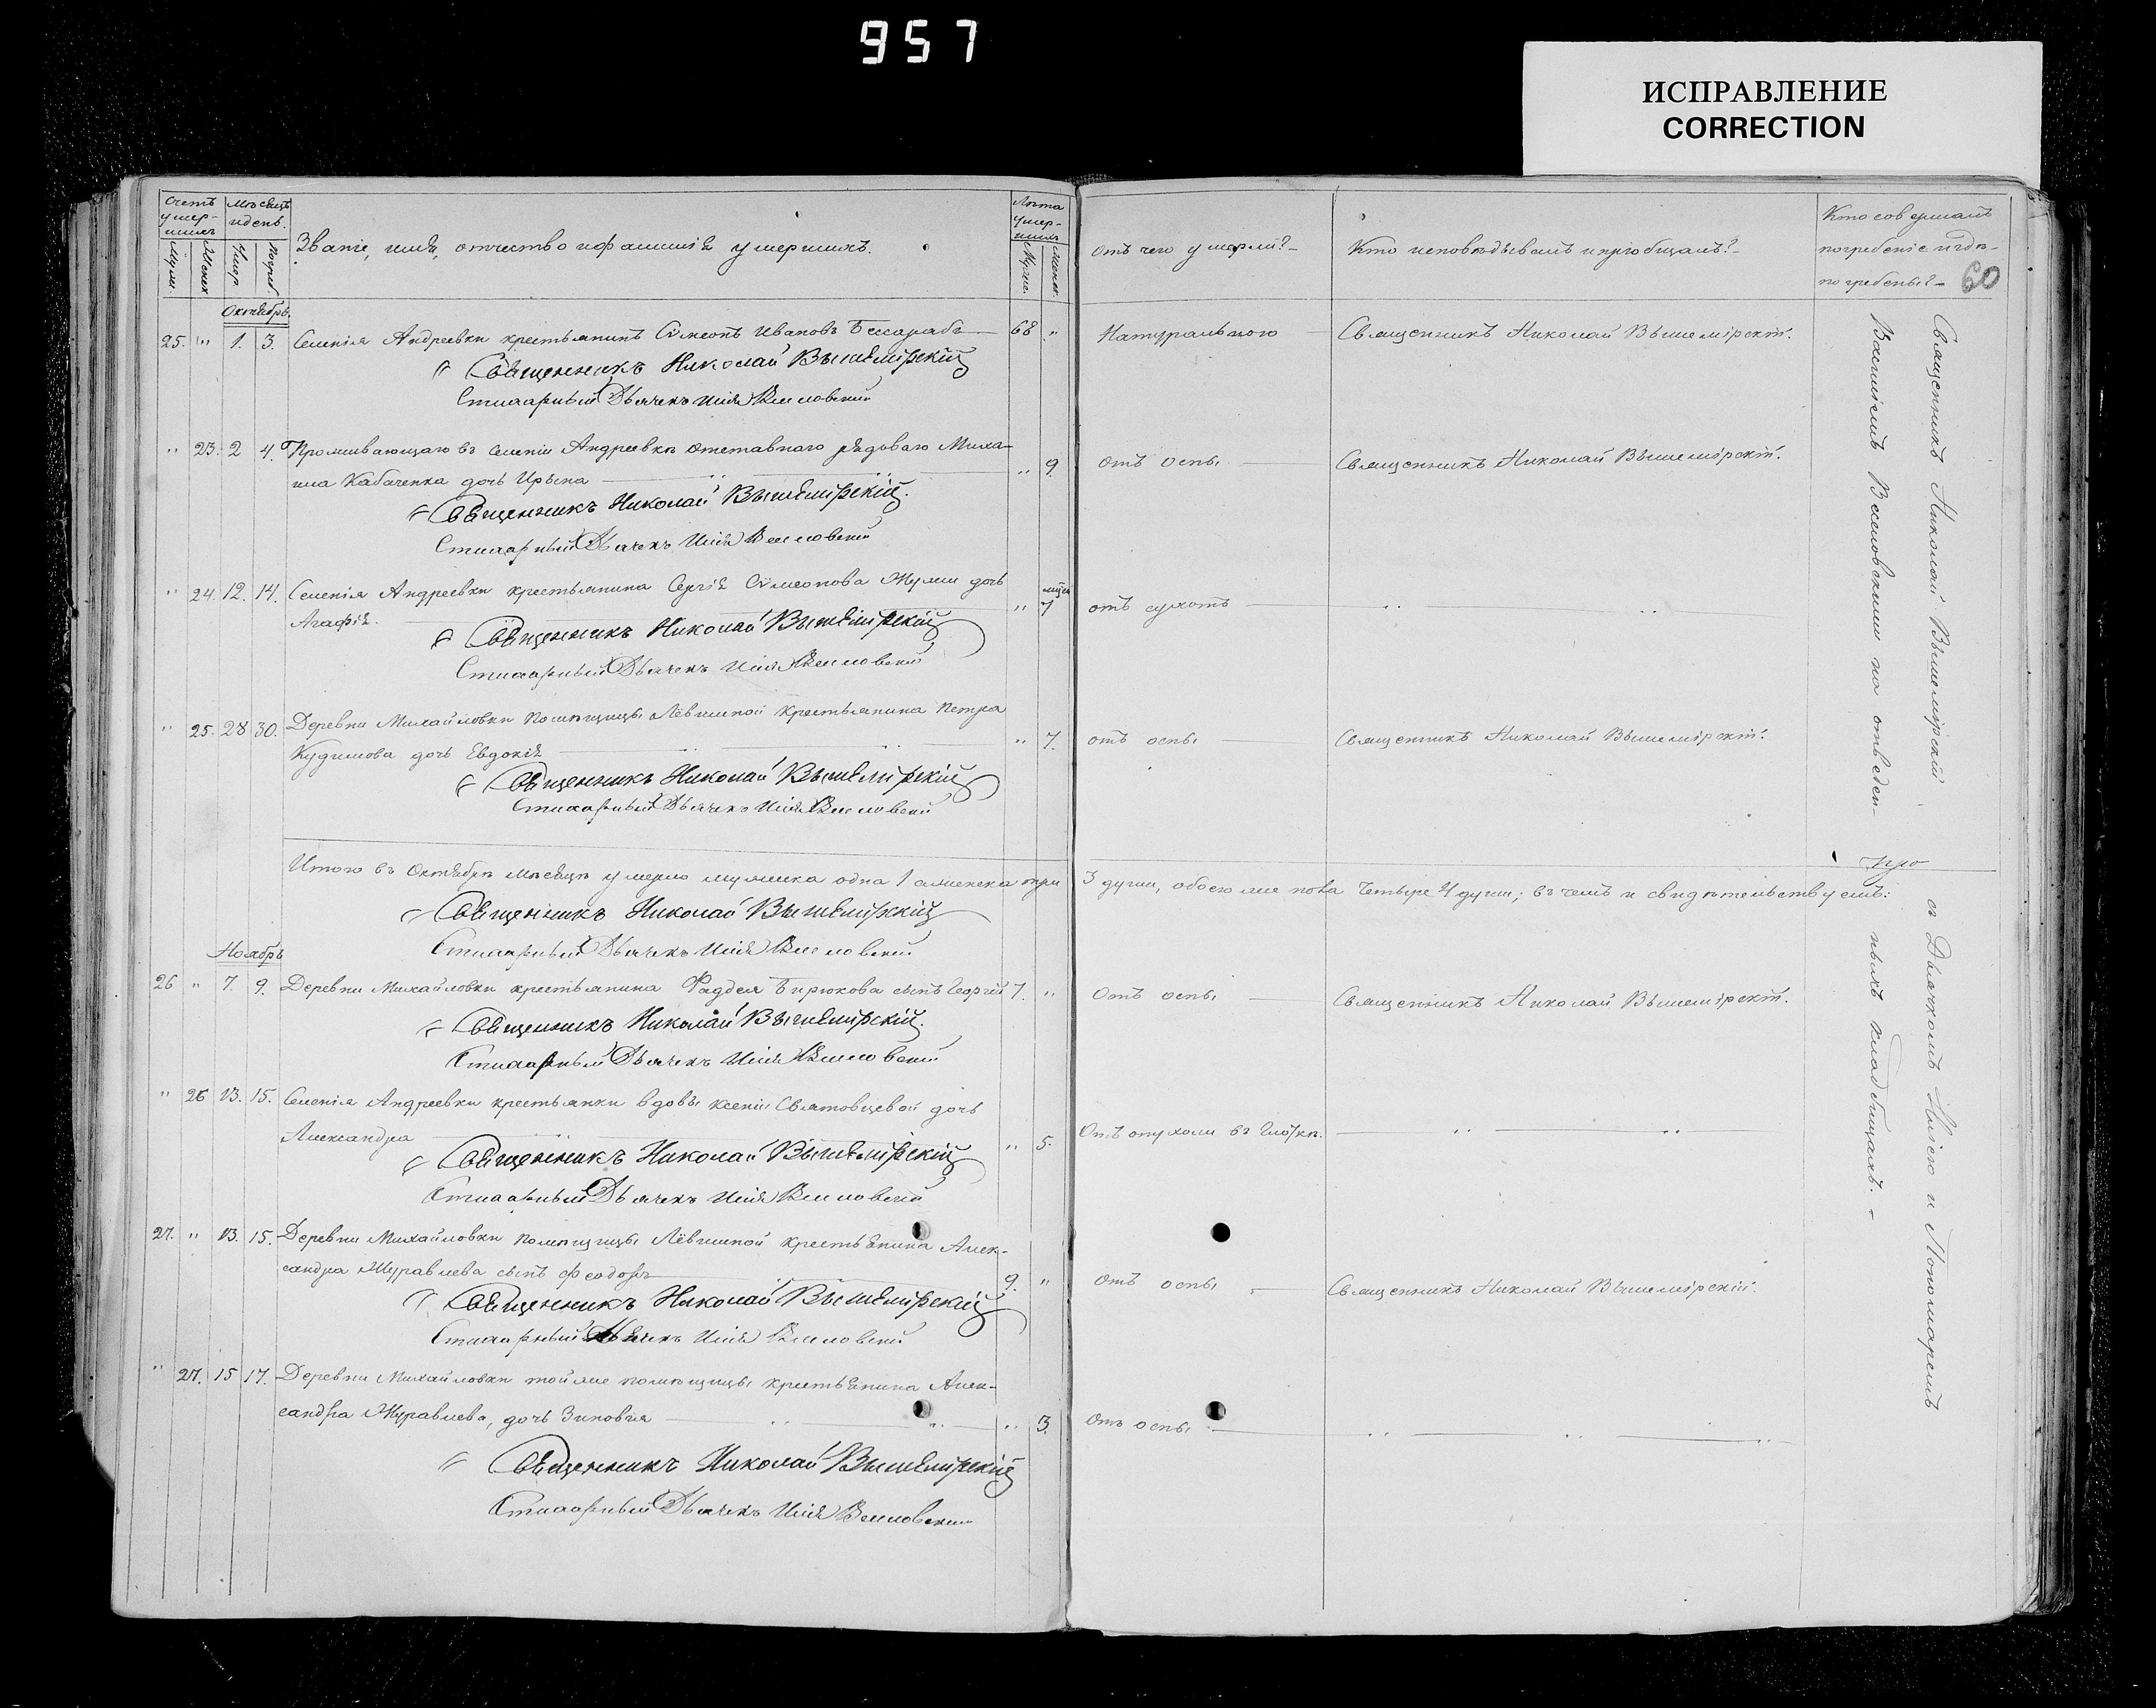 957
ИСПРАВЛЕНИЕ
CORRECTION
Счетъ умер-шихъ
Мѣсяцъ и день.
Званіе, имя, отчество и фамилія умершихъ.
Лѣта умер-шихъ
Отъ чего умерли?
Кто исповѣдывалъ и пріобщалъ?
Кто совершалъ
погребеніе и гдѣ
погребены?
60
Муж.
Женск.
Умер.
Погреб.
Муже.
Женск.
Октябрь.
25. " 1. 3. Селенія Андреевки крестьянинъ Сѵмеонъ Ивановъ Бессарабъ 68 " Натуральною Священникъ Николай Вышемірскій.
Священникъ Николай Вышемірскій
Стихарный Дьячекъ Илія Веселовскій
" 23. 2 4. Проживающаго въ селеніи Андреевкѣ отставнаго рядоваго Миха-
ила Кабаченка дочь Ирына " 9. Отъ оспы Священникъ Николай Вышемірскій.
Священникъ Николай Вышемірскій.
Стихарный Дьячекъ Илія Веселовскій
" 24. 12. 14. Селенія Андреевки крестьянина Сергія Сѵмеонова Жулии дочь
Агафія. " 7 отъ сухотъ " "
Священникъ Николай Вышемірскій
Стихарный Дьячекъ Илія Веселовскій
" 25. 28 30. Деревни Михайловки помѣщицы Лёвшиной крестьянина Петра
Кудимова дочь Евдокія " 7. отъ оспы Священникъ Николай Вышемірскій.
Священникъ Николай Вышемірскій
Стихарный Дьячекъ Илія Веселовскій
Итого въ Октябрѣ мѣсяцѣ умерло мужеска одна 1 а женска три 3 души, обоего же пола четыре 4 души; въ чемъ и свидѣтельствуемъ:
Священникъ Николай Вышемірскій
Стихарный Дьячекъ Илія Веселовскій
Ноябрь
26 " 7. 9. Деревни Михайловки крестьянина Фаддея Бирюкова сынъ Георгій 7. " Отъ оспы Священникъ Николай Вышемірскій.
Священникъ Николай Вышемірскій.
Стихарный Дьячекъ Илія Веселовскій
" 26 13. 15. Селенія Андреевки крестьянки вдовы Ксеніи Святовцевой дочь
Александра " 5. Отъ опухоли въ глоткѣ. " "
Священникъ Николай Вышемірскій
Стихарный Дьячекъ Илія Веселовскій
27. " 13. 15. Деревни Михайловки помѣщицы Лёвшиной крестьянина Алек-
сандра Журавлева сынъ Феодоръ 9. " отъ оспы Священникъ Николай Вышемірскій.
Священникъ Николай Вышемірскій
Стихарный Дьячекъ Илія Веселовскій
" 27. 15 17. Деревни Михайловки той же помѣщицы крестьянина Алек-
сандра Журавлева, дочь Зиновія " 13. Отъ оспы " " "
Священникъ Николай Вышемірскій
Стихарный Дьячекъ Илія Веселовскій
Священникъ Николай Вышемірскій съ Дьячкомъ Иліею и Пономаремъ
Василіемъ Веселовскими на отведен-
ныхъ кладбищахъ.